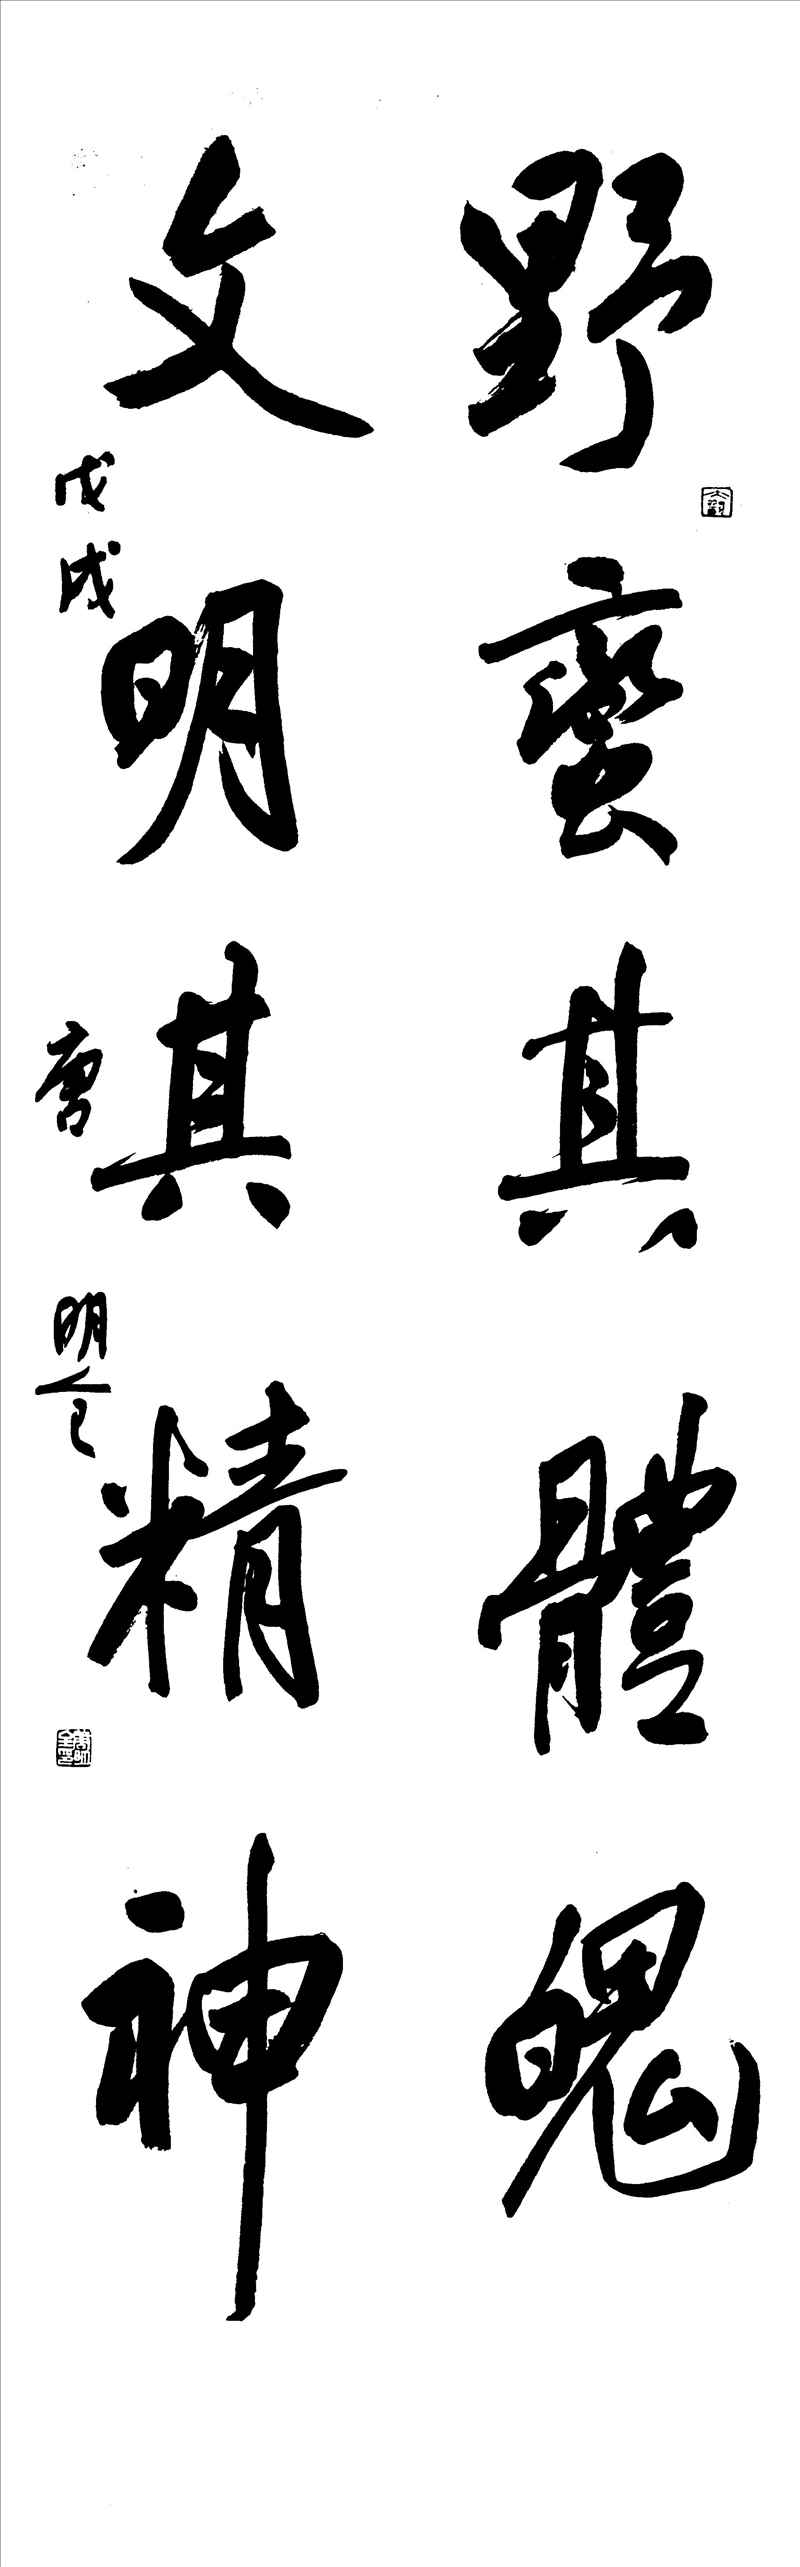 野蠻其體魄
文明其精神
戊戌 唐明